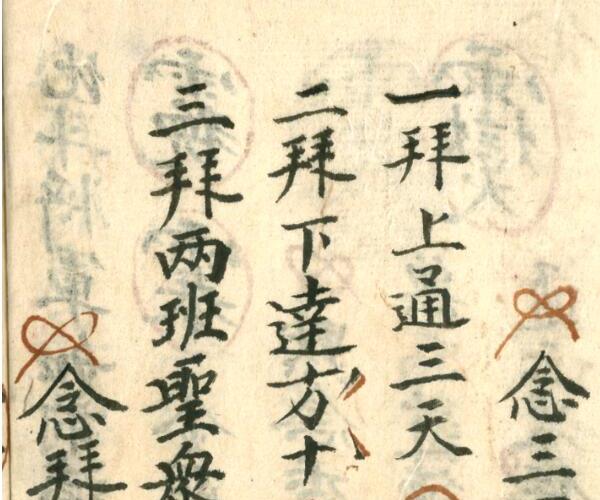 念三
一拜上通三天
二拜下達方十
三拜两班聖衆
念拜